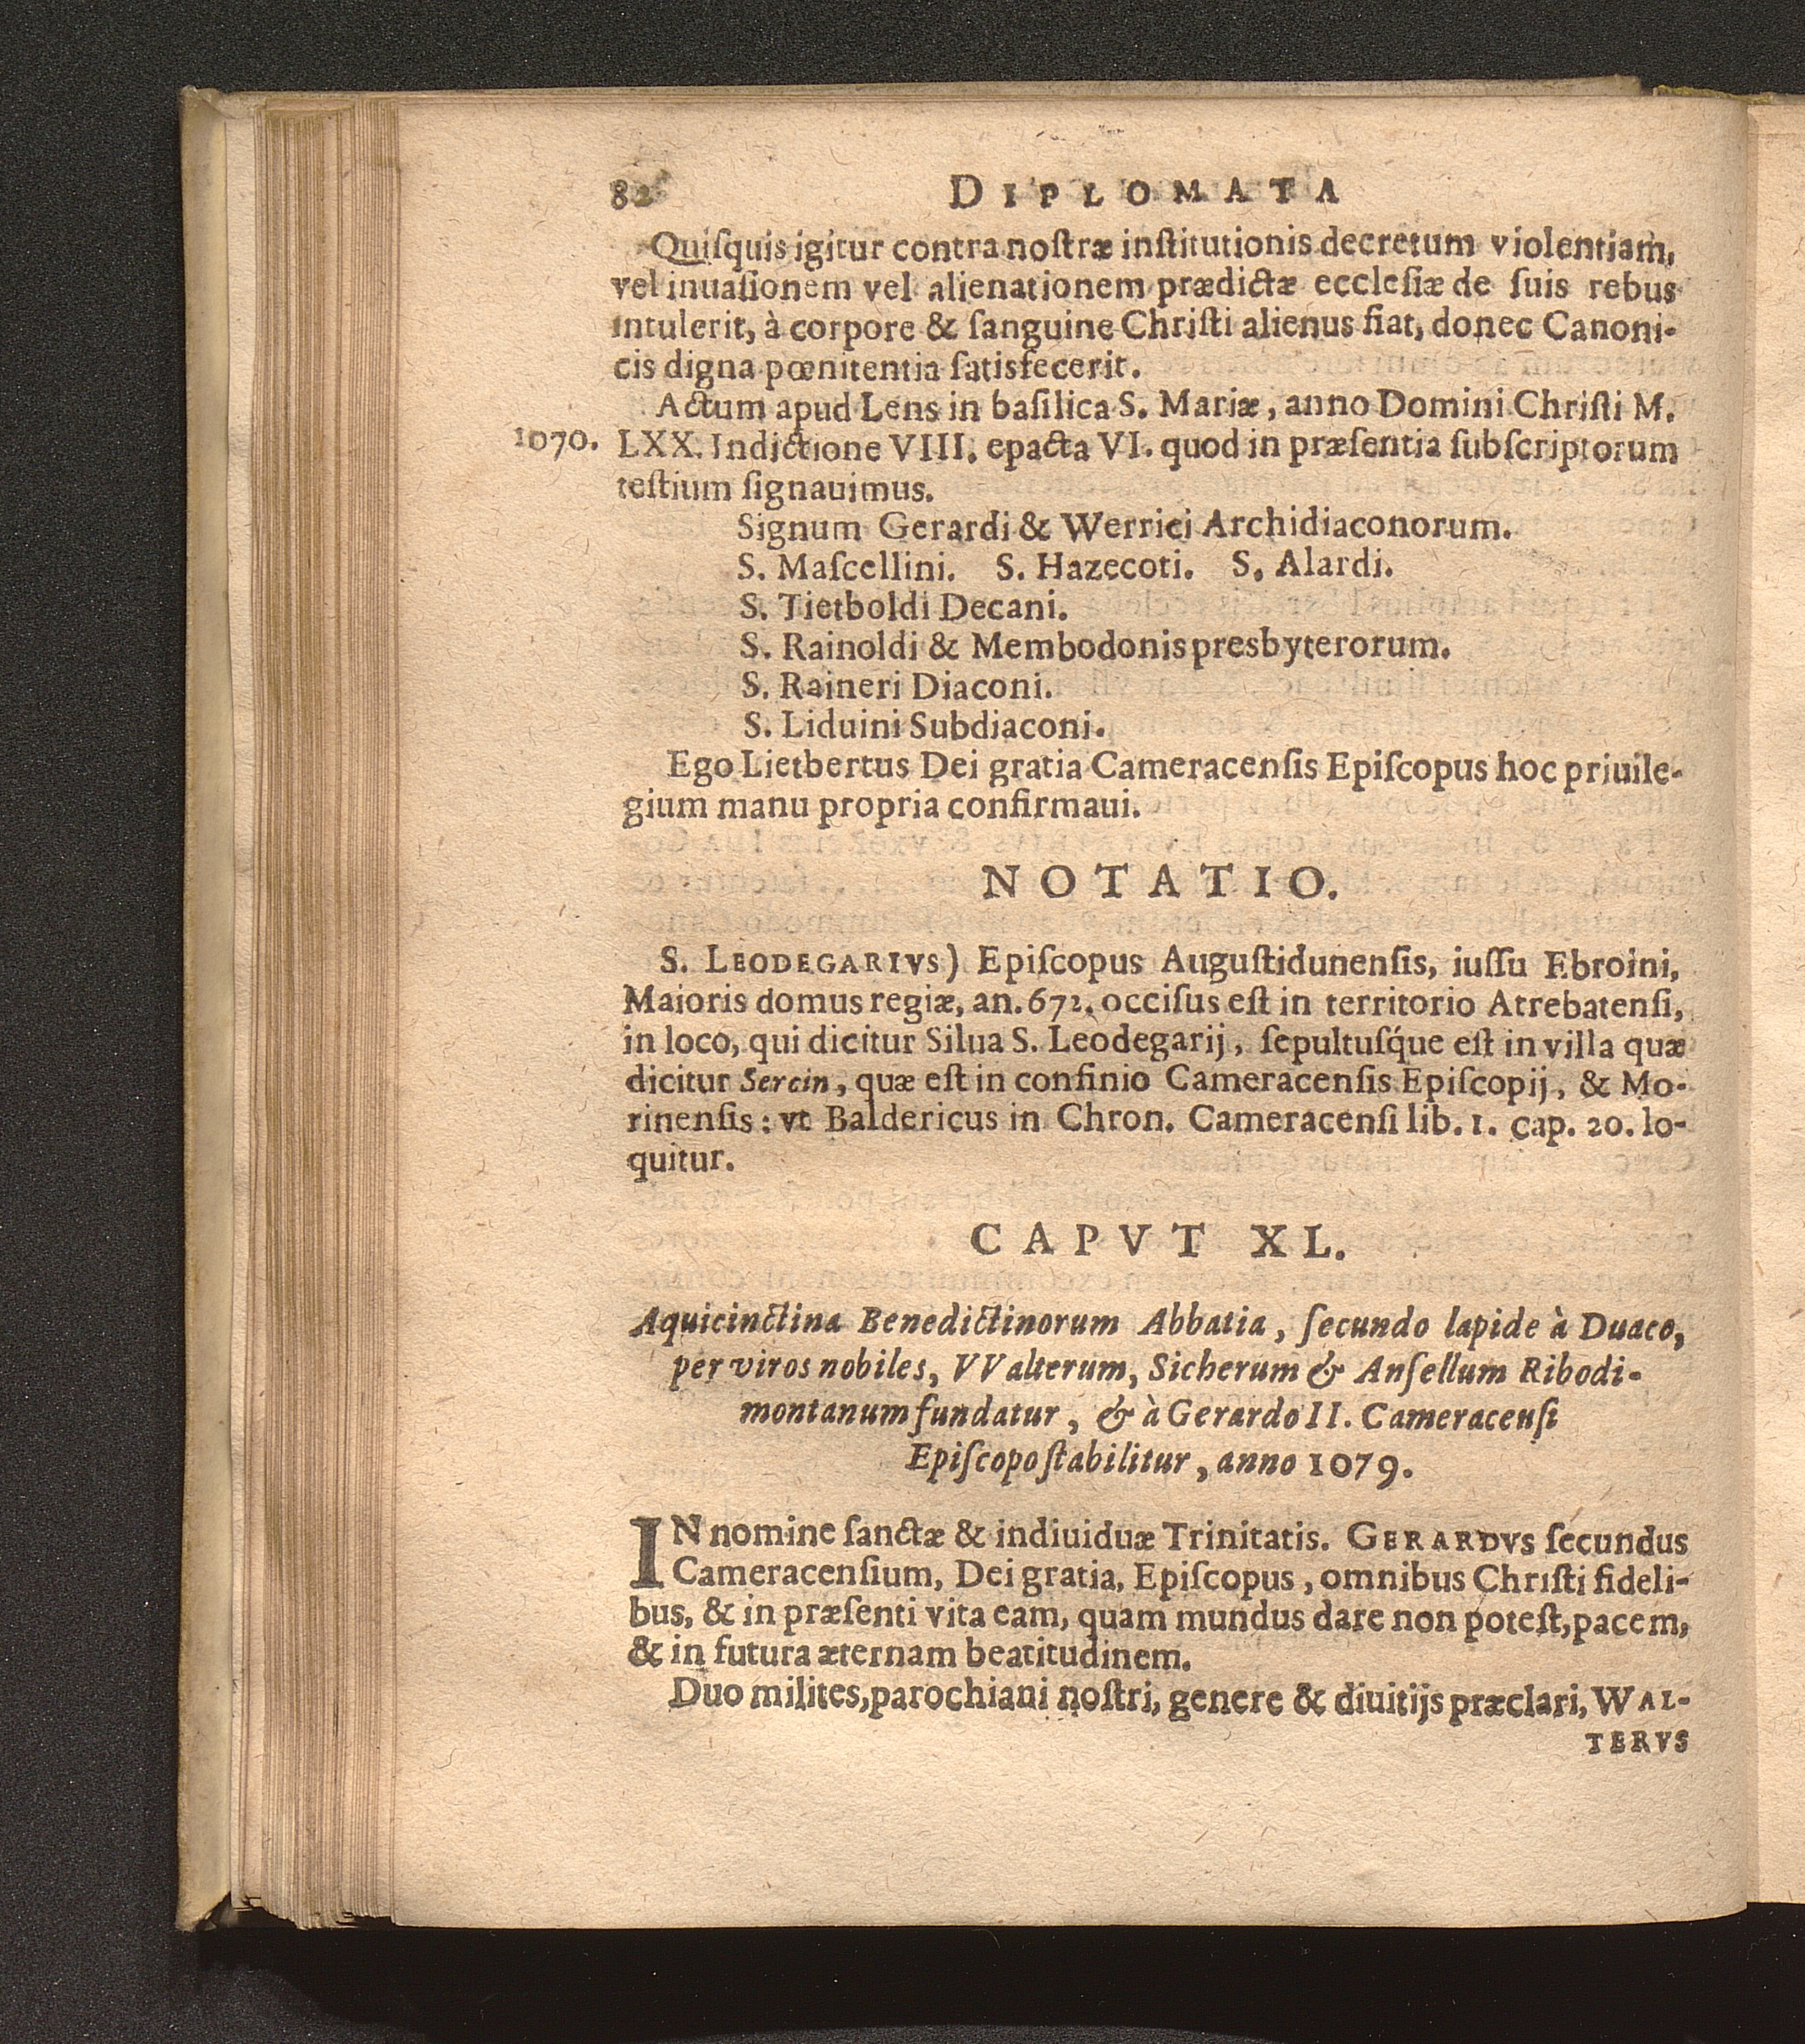 82 DIPLOMATA
Quiſquis igitur contra noſtræ inſtitutionis decretum violentiam,
vel inuaſionem vel alienationem prædictæ eccleſiæ de ſuis rebus
intulerit, à corpore & ſanguine Chriſti alienus fiat, donec Canoni-
cis digna pœnitentia ſatisfecerit.
Actum apud Lens in baſilica S. Mariæ, anno Domini Chriſti M.
1070. LXX. Indictione VIII. epacta VI. quod in præſentia ſubſcriptorum
teſtium ſignauimus.
Signum Gerardi & Werrici Archidiaconorum.
S. Maſcellini. S. Hazecoti. S. Alardi.
S. Tietboldi Decani.
S. Rainoldi & Membodonis presbyterorum.
S. Raineri Diaconi.
S. Liduini Subdiaconi.
Ego Lietbertus Dei gratia Cameracenſis Epiſcopus hoc priuile-
gium manu propria confirmaui.
NOTATIO.
S. LEODEGARIVS) Epiſcopus Auguſtidunenſis, iuſſu Ebroini,
Maioris domus regiæ, an. 672. occiſus eſt in territorio Atrebatenſi,
in loco, qui dicitur Silua S. Leodegarij, ſepultuſq́ue eſt in villa quæ
dicitur Sercin, quæ eſt in confinio Cameracenſis Epiſcopij, & Mo-
rinenſis: vt Baldericus in Chron. Cameracenſi lib. 1. cap. 20. lo-
quitur.
CAPVT XL.
Aquicinctina Benedictinorum Abbatia, ſecundo lapide à Duaco,
per viros nobiles, VValterum, Sicherum & Anſellum Ribodi-
montanum fundatur, & à Gerardo II. Cameracenſi
Epiſcopo ſtabilitur, anno 1079.
IN nomine ſanctæ & indiuiduæ Trinitatis. GERARDVS ſecundus
Cameracenſium, Dei gratia, Epiſcopus, omnibus Chriſti fideli-
bus, & in præſenti vita eam, quam mundus dare non poteſt, pacem,
& in futura æternam beatitudinem.
Duo milites, parochiani noſtri, genere & diuitijs præclari, WAL-
TERVS